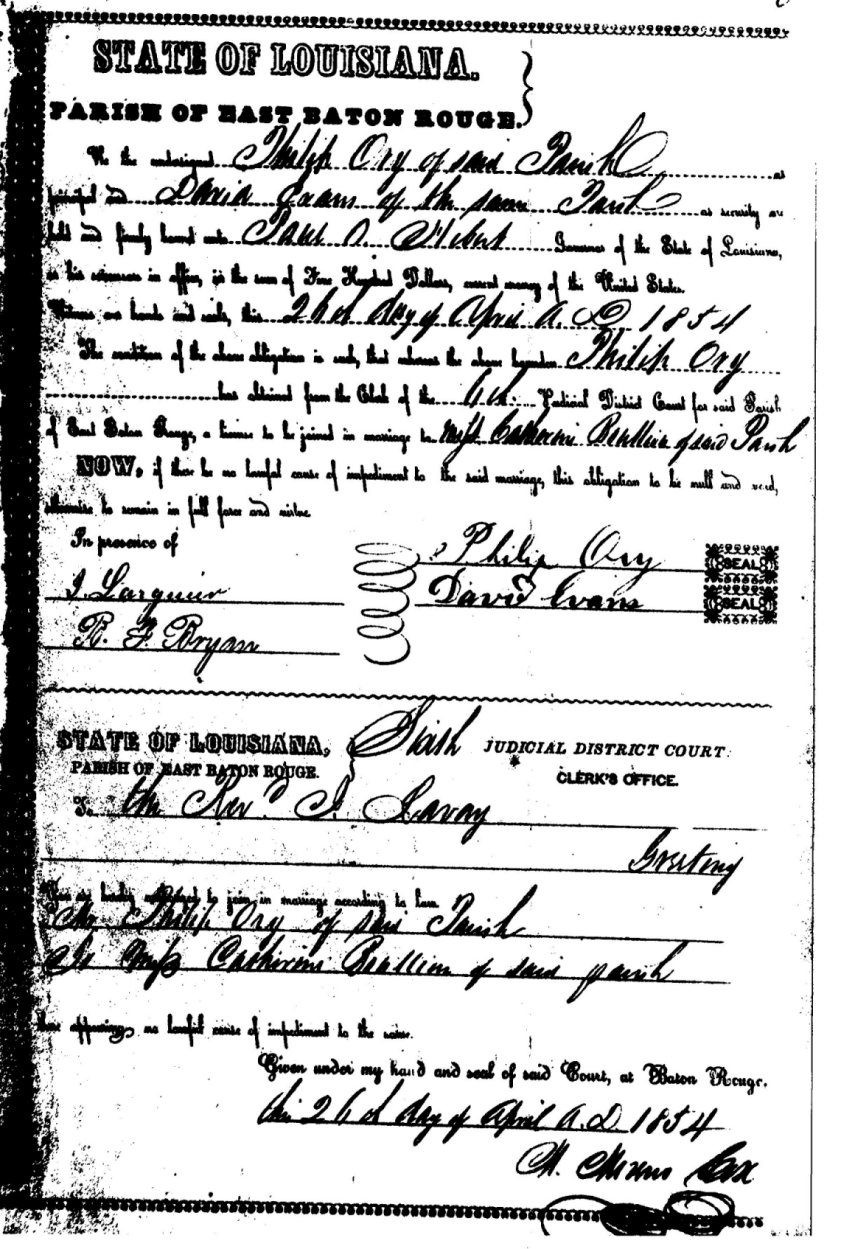 STATE OF LOUISIANA.
PARISH OF EAST BATON ROUGE.
We the undersigned Philip Ory of said Parish as
principal and David Evans of the same Parish as security are
held and firmly bound unto Paul O. Hebert Governor of the State of Louisiana,
his successors in office, in the sum of Five Hundred Dollars, current money of the United States.
Witness our hands and seals, this 26th day of April A. D. 1854
The condition of the above obligation is such, that whereas the above bounden Philip Ory
has obtained from the Clerk of the 6th Judicial District Court for said Parish
of East Baton Rouge, a license to be joined in marriage to Miss Catherine of said Parish
NOW, if there be no lawful cause of impediment to the said marriage, this obligation to be null and void,
otherwise to remain in full force and virtue
In presence of
Philip Ory SEAL
J. Larguier David Evans SEAL
R. F. Bryan
STATE OF LOUISIANA, Sixth JUDICIAL DISTRICT COURT.
PARISH OF EAST BATON ROUGE. CLERK'S OFFICE.
To the Revd
Greeting
You are hereby authorized to join in marriage according to law
Mr Philip Ory of said Parish
To Miss Catherine of said parish
there appearing no lawful cause of impediment to the same.
Given under my hand and seal of said Court, at Baton Rouge.
this 26th day of April A.D. 1854